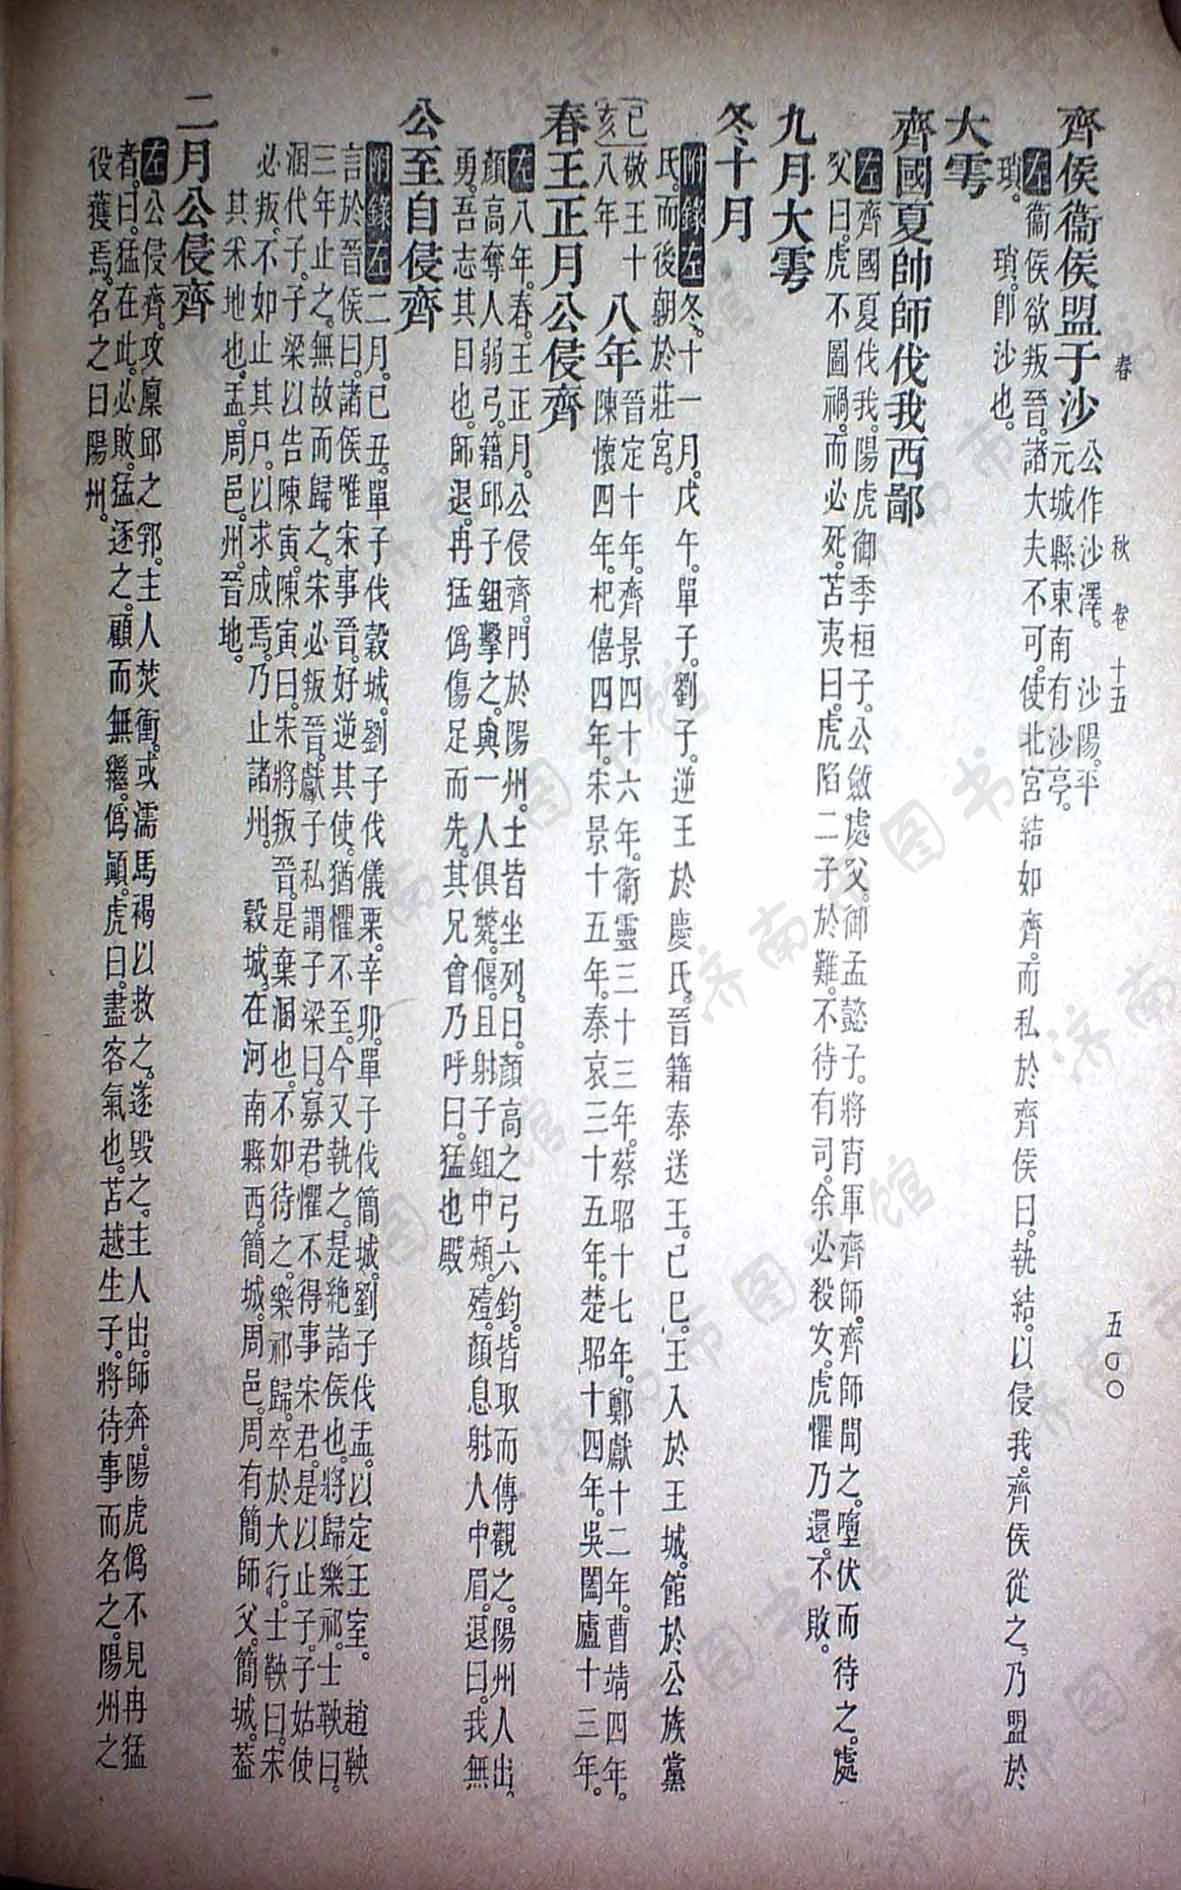 春　秋　卷十五　五〇〇
齊侯衞侯盟于沙 公作沙澤。　沙陽。平
元城縣東南有沙亭。
左衞侯欲叛晉。諸大夫不可。使北宮結如齊。而私於齊侯曰。執結。以侵我。齊侯從之。乃盟於
瑣。　瑣。卽沙也。
大雩
齊國夏帥師伐我西鄙
左齊國夏伐我。陽虎御季桓子。公斂處父。御孟懿子。將宵軍齊師。齊師聞之。墮伏而待之。處
父曰。虎不圖禍。而必死。苫夷曰。虎陷二子於難。不待有司。余必殺女。虎懼乃還。不敗。
九月大雩
冬十月
附錄左冬。十一月。戊午。單子。劉子。逆王於慶氏。晉籍秦送王。己巳。王入於王城。館於公族黨
氏。而後朝於莊宮。
己亥 敬王十八年 八年 晉定十年。齊景四十六年。衞靈三十三年。蔡昭十七年。鄭獻十二年。曹靖四年。
陳懷四年。杞僖四年。宋景十五年。秦哀三十五年。楚昭十四年。吳闔廬十三年。
春王正月公侵齊
左八年。春。王正月。公侵齊。門於陽州。士皆坐列。曰。顏高之弓六鈞。皆取而傳觀之。陽州人出。
顏高奪人弱弓。籍邱子鉏擊之。與一人俱斃。偃。且射子鉏中頰。殪。顏息射人中眉。退曰。我無
勇。吾志其目也。師退。冉猛僞傷足而先。其兄會乃呼曰。猛也殿
公至自侵齊
附錄左二月。已丑。單子伐穀城。劉子伐儀栗。辛卯。單子伐簡城。劉子伐盂。以定王室。　趙鞅
言於晉侯曰。諸侯唯宋事晉。好逆其使。猶懼不至。今又執之。是絶諸侯也。將歸樂祁。士鞅曰。
三年止之。無故而歸之。宋必叛晉。獻子私謂子梁曰。寡君懼不得事宋君。是以止子。子姑使
溷代子。子梁以告陳寅。陳寅曰。宋將叛晉。是棄溷也。不如待之。樂祁歸。卒於大行。士鞅曰。宋
必叛。不如止其尸。以求成焉。乃止諸州。　穀城。在河南縣西。簡城。周邑。周有簡師父。簡城。葢
其采地也。盂。周邑。州。晉地。
二月公侵齊
左公侵齊。攻廩邱之郛。主人焚衝。或濡馬褐以救之。遂毀之。主人出。師奔。陽虎僞不見冉猛
者。曰。猛在此。必敗。猛逐之。顧而無繼。僞顚。虎曰。盡客氣也。苫越生子。將待事而名之。陽州之
役獲焉。名之曰陽州。